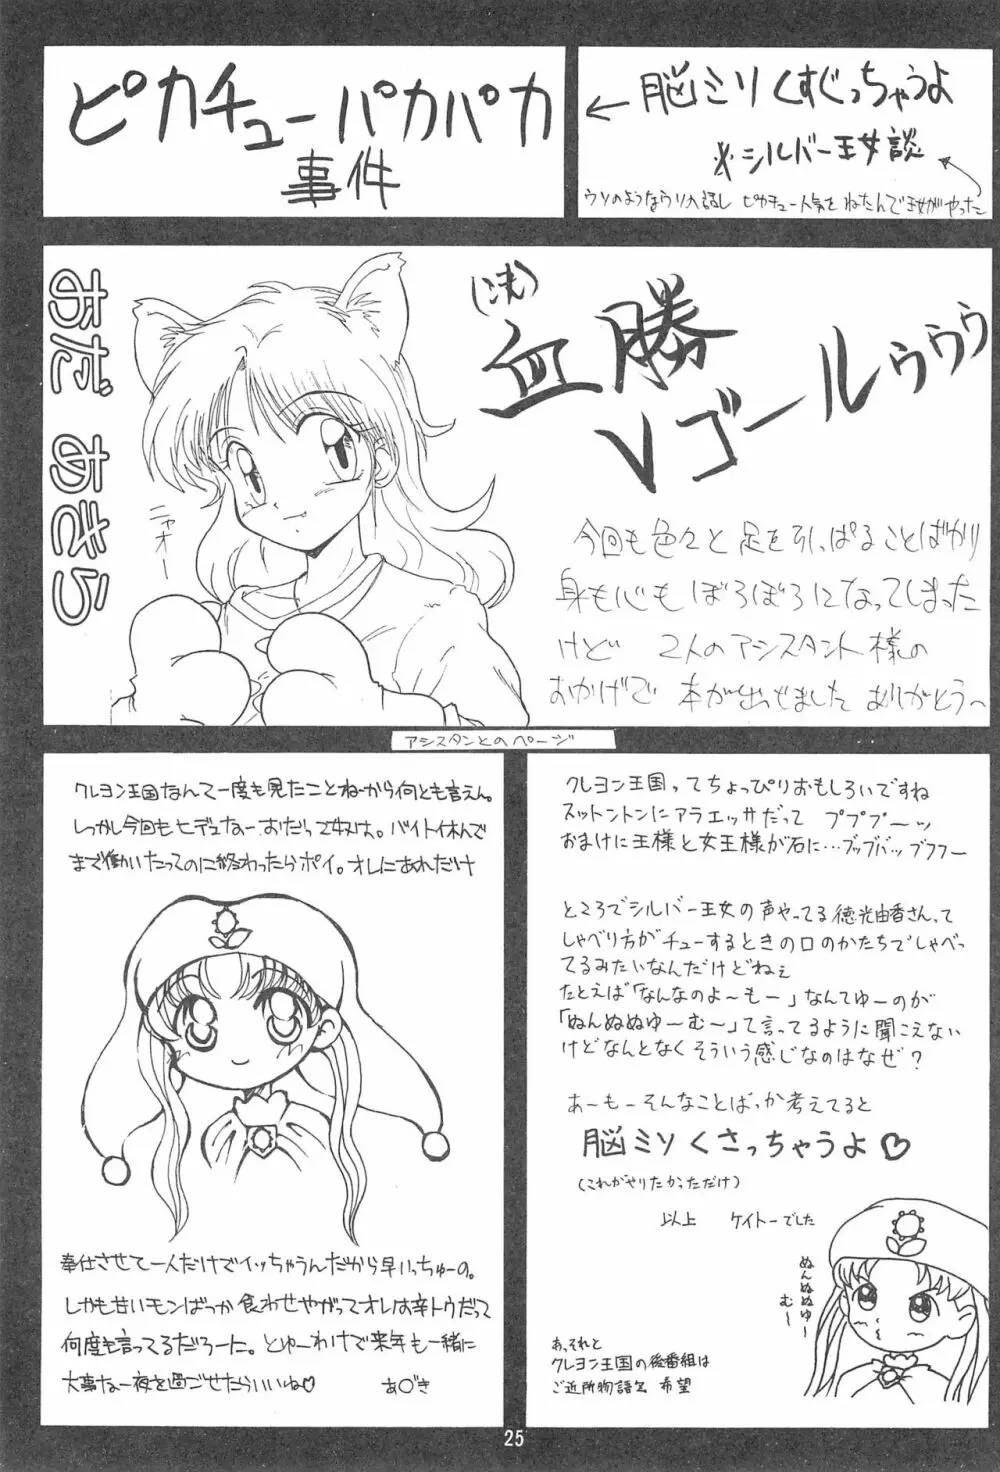 ピカチューパカパカ
事件
←脳ミソくすぐっちゃうよ
※シルバー王女談
ウソのようなウソの話し ピカチュー人気をねたんで王女がやった
おだ あきら
ニャオー
血勝
Vゴールゥゥゥ
今回も色々と足を引っぱることばかり
身も心もぼろぼろになってしまった
けど 2人のアシスタント様の
おかげで 本が出せました ありがとう〜
アシスタンとのページ
クレヨン王国なんて一度も見たことねーから何とも言えん。
しっかし今回もヒデェなーおだって奴は。バイト休んで
まで働いたってのに終わったらポイ。オレにあれだけ
奉仕させて一人だけでイッちゃうんだから早いっちゅーの。
しかも甘いモンばっか食わせやがってオレは辛トウだって
何度も言ってるだろーた。とゆーわけで来年も一緒に
大事な一夜を過ごせたらいいね♡ あ○゛き
クレヨン王国ってちょっぴりおもしろいですね
ストントンにアラエッサだって プププ〜ッ
おまけに王様と女王様が石に…ブッブバッブフフー
ところでシルバー王女の声やってる徳光由香さんって
しゃべり方がチューするときの口のかたちでしゃべっ
てるみたいなんだけどねぇ
たとえば「なんなのよ〜も〜」なんてゆーのが
「ぬんぬぬゆ〜む〜」て言ってるように聞こえない
けどなんとなくそういう感じなのはなぜ?
あーもーそんなことばっか考えてると
脳ミソくさっちゃうよ♡
(これがやりたかっただけ)
以上 ケイトーでした
ぬんぬぬゆ〜
む〜
あっそれと
クレヨン王国の後番組は
ご近所物語2 希望
25